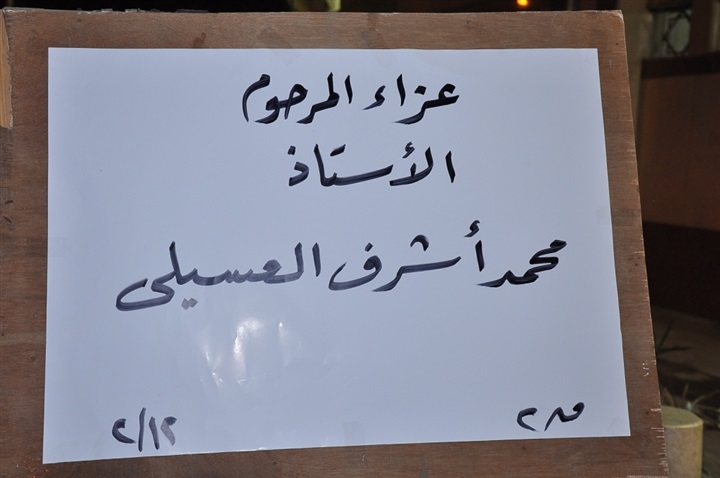 عزاء المرحوم
الأستاذ
محمد أشرف العسيلى
٢/١٢